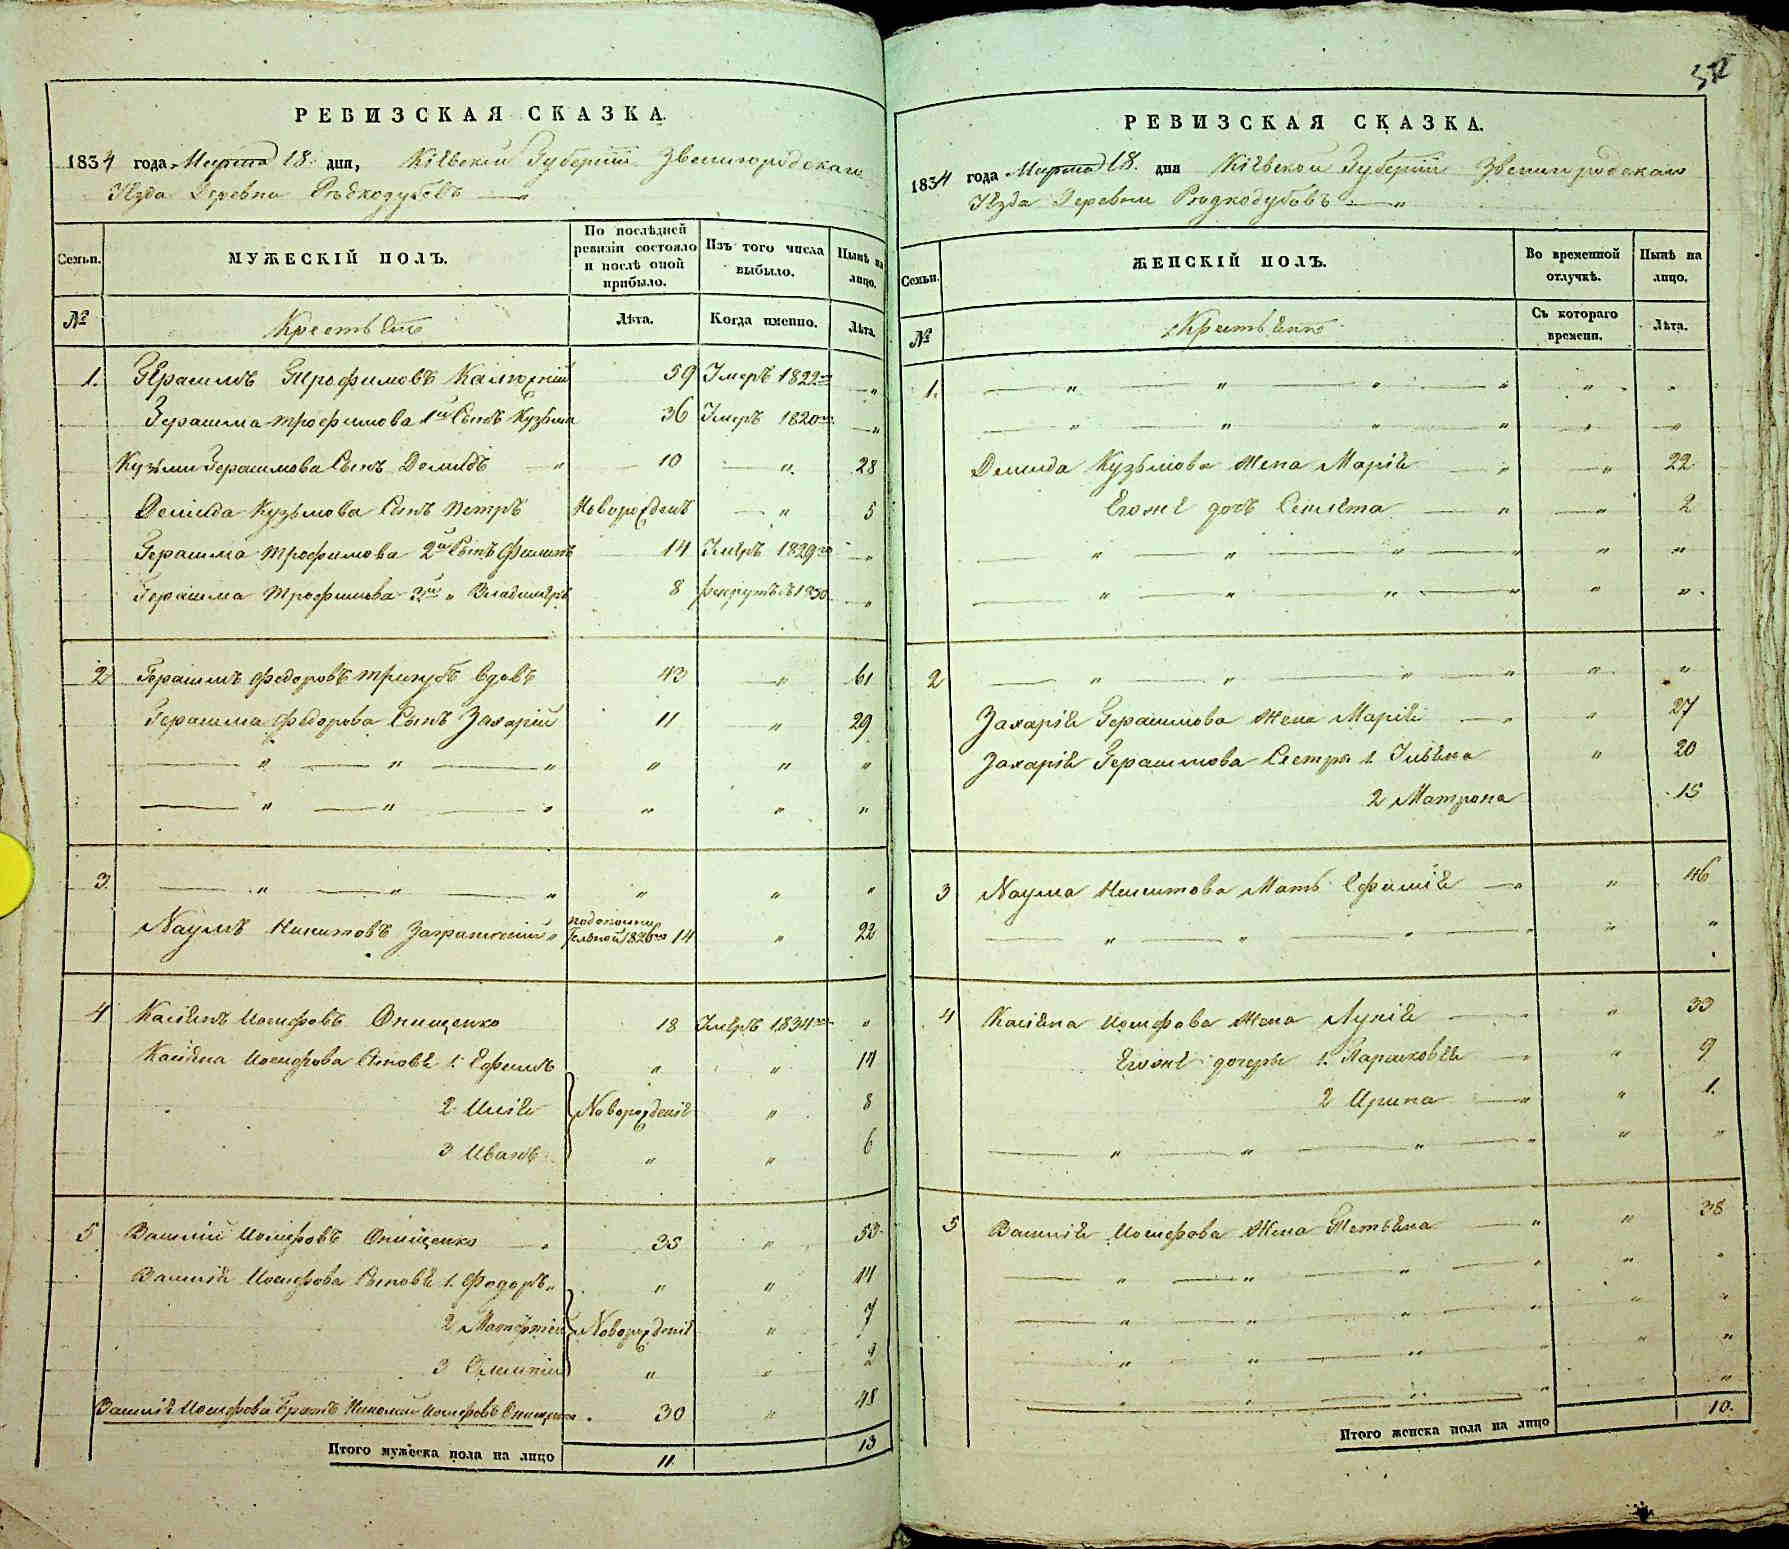 РЕВИЗСКАЯ СКАЗКА.
1834 года Марта 18. дня, Кіевской Губерніи Звенигородскаго
Уѣзда Деревни Рѣдкодубовъ
Семьи. МУЖЕСКІЙ ПОЛЪ. По послѣдней ревизіи состояло и послѣ оной прибыло. Изъ того числа выбыло. Нынѣ на лицо.
№ Крестьяне Лѣта. Когда именно. Лѣта.
1. Герасимъ Трофимовъ 59 Умеръ 1822го "
Герасима Трофимова 1й Сынъ Кузьма 36 Умеръ 1820го "
Кузьми Герасимова Сынъ Демидъ " 10 " 28
Демида Кузьмова Сынъ Петръ Новорожденъ " 5
Герасима Трофимова 2й Сынъ Филипъ 14 Умеръ 1829го "
Герасима Трофимова 3й " Владимѣръ 8 Рекрутъ въ 1830 "
2 Герасимъ Федоровъ Тригубъ Вдовъ 43 " 61
Герасима Федорова Сынъ Захарій 11 " 29
" " " " " "
" " " " " "
3. " " " " " "
Наумъ Никитовъ " 1826го 14 " 22
4 Касіянъ Иосифовъ Онищенко 18 Умеръ 1834го "
Касіяна Иосифова Сыновья 1. Ефимъ " " 14
2 Илія Новорожденіе " 8
3 Иванъ " " 6
5 Василій Иосифовъ Онищенко " 35 " 53
Василія Иосифова Сыновья 1. Федоръ " " " 14
2 Матфтей Новорожденіе " 7
3 " " 2
Василія Иосифова Братъ Николай Иосифовъ Онищенко. 30 " 48
Итого мужеска пола на лицо 11 13
РЕВИЗСКАЯ СКАЗКА.
1834 года Марта 18. дня Кіевской Губерніи Звенигородскаго
Уѣзда Деревни Рѣдкодубовъ "
Семьи. ЖЕНСКІЙ ПОЛЪ. Во временной отлучкѣ. Нынѣ на лицо.
№ Крестьяне Съ котораго времени. Лѣта.
1. " " " " " "
" " " " " "
Демида Кузьмова Жена Марія " " 22
Егоже дочь " " 2
" " " " " "
" " " " " "
2 " " " " " "
Захарія Герасимова Жена Марія " " 27
Захарія Герасимова Сестры 1. Ульяна " 20
2 Матрона 15
3 Наума Никитова Мать Ефимія " " 46
" " " " " "
4 Касіяна Иосифова Жена Лукія " " 33
Егоже дочеры 1. Парасковія " " 9
2 Ирина " " 1.
" " " " " "
5 Василія Иосифова Жена Тетяна " " 38
" " " " " "
" " " " " "
" " " " " "
" " " "
Итого женска пола на лицо 10.